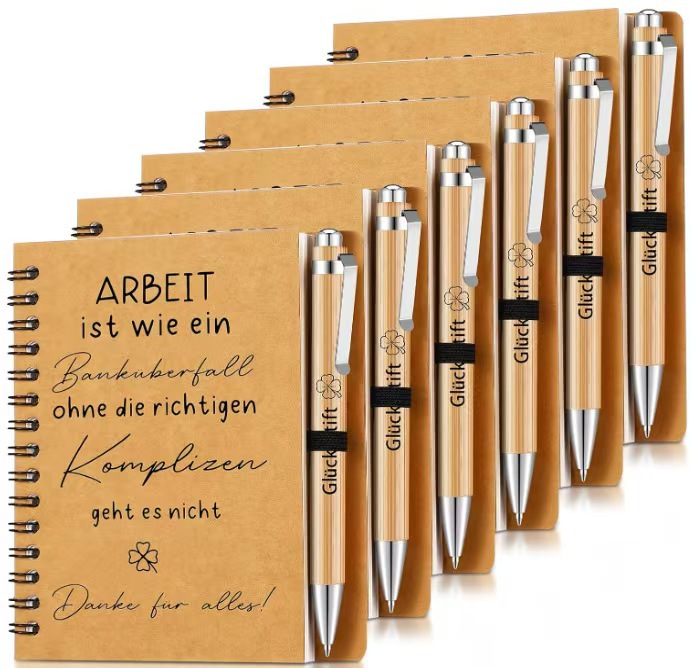 ARBEIT
ist wie ein
Bankuberfall
ohne die richtigen
Komplizen
geht es nicht
Danke für alles!
Glück tift
Glück tift
Glück tift
Glück tift
Glück tift
Glück tift